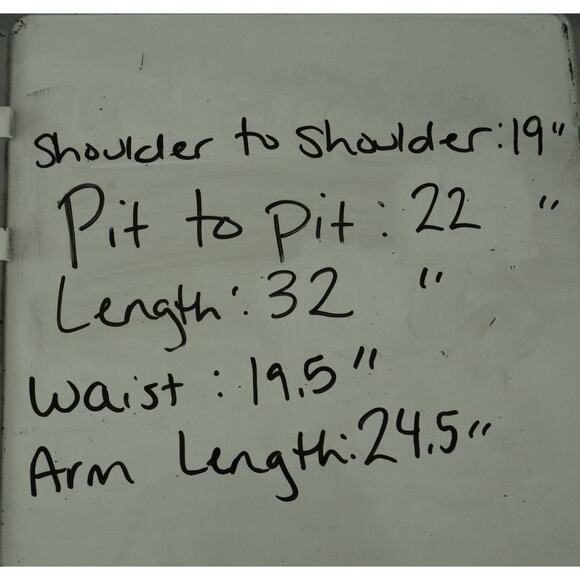 Shoulder to Shoulder: 19"
Pit to Pit: 22 "
Length: 32 "
Waist: 19.5"
Arm Length: 24.5"